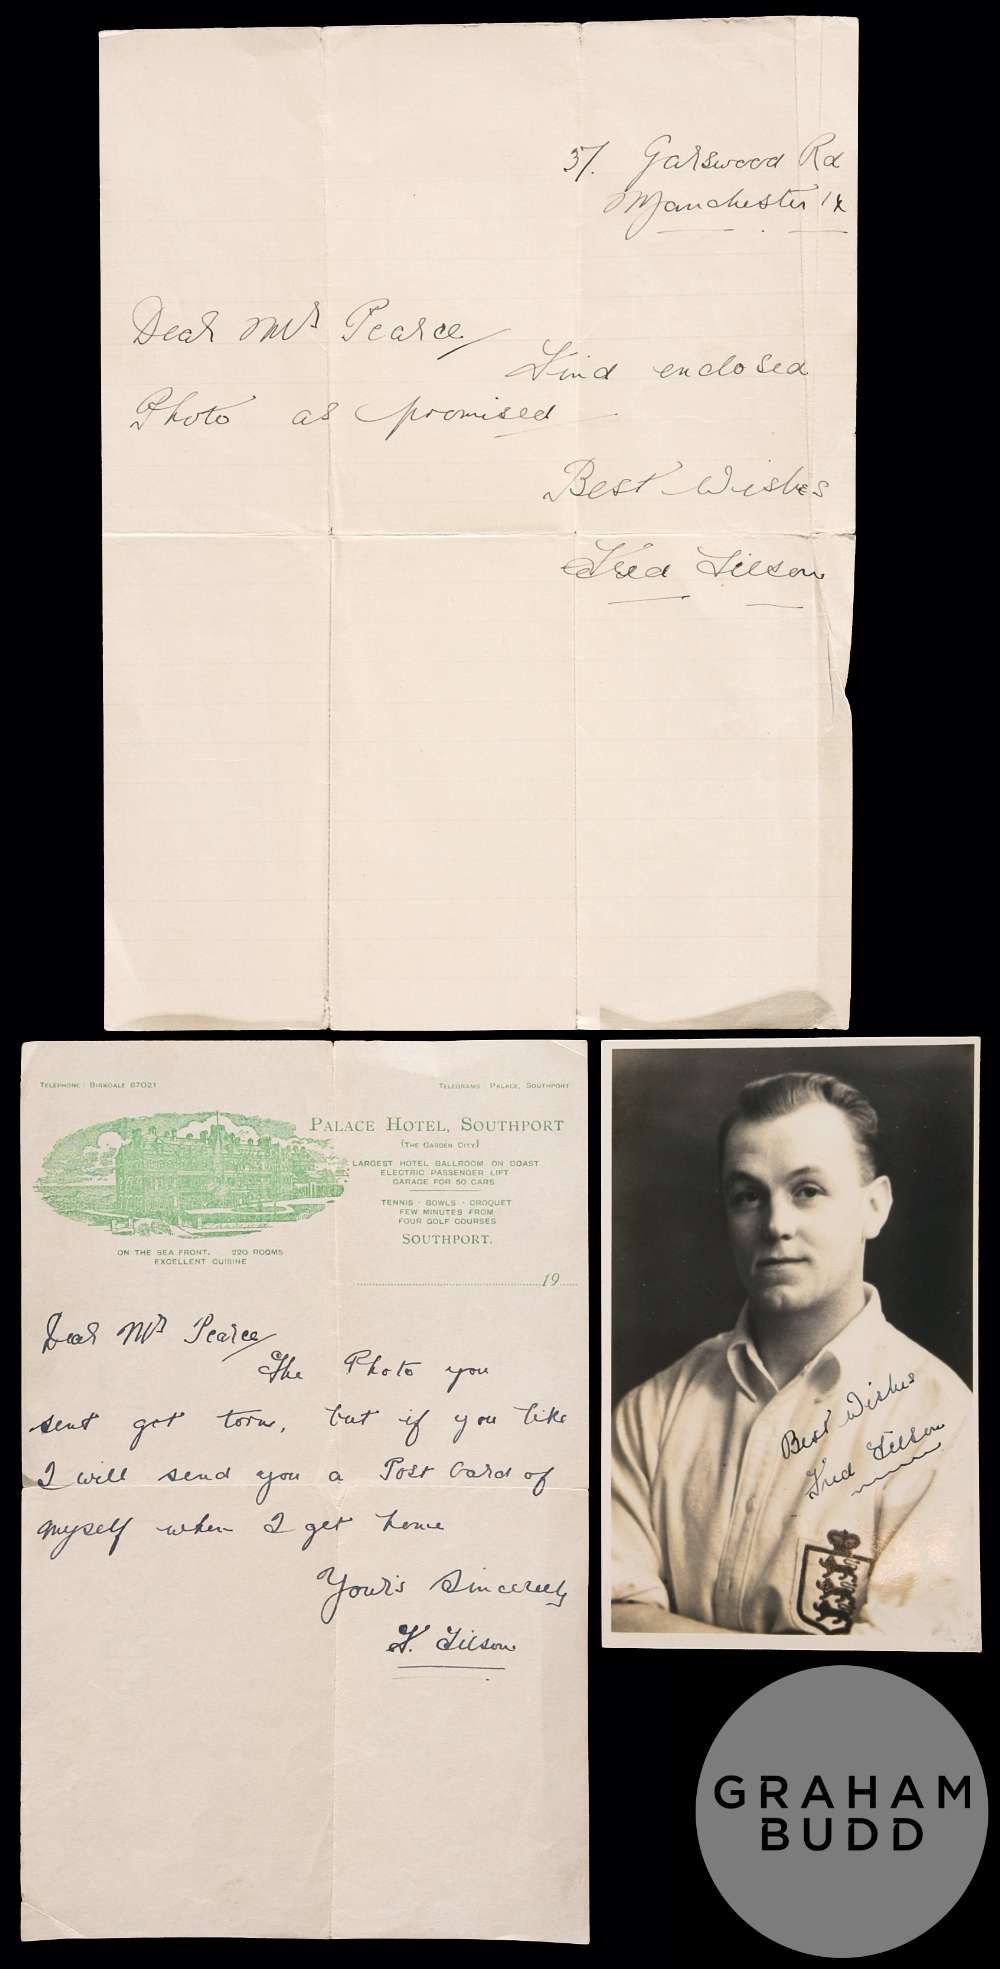 37. Garswood Rd
Manchester 14
Dear Mr Pearce
Find enclosed
Photo as promised
Best Wishes
Fred Tilson
TELEPHONE: BIRKDALE 67021
TELEGRAMS: PALACE, SOUTHPORT
PALACE HOTEL, SOUTHPORT
(THE GARDEN CITY)
LARGEST HOTEL BALLROOM ON COAST
ELECTRIC PASSENGER LIFT
GARAGE FOR 50 CARS
TENNIS · BOWLS · CROQUET
FEW MINUTES FROM
FOUR GOLF COURSES
SOUTHPORT.
ON THE SEA FRONT. 220 ROOMS
EXCELLENT CUISINE
19
Dear Mr Pearce
The Photo you
sent got torn, but if you like
I will send you a Post Card of
myself when I get home
Yours Sincerely
F. Tilson
Best Wishes
Fred Tilson
GRAHAM
BUDD